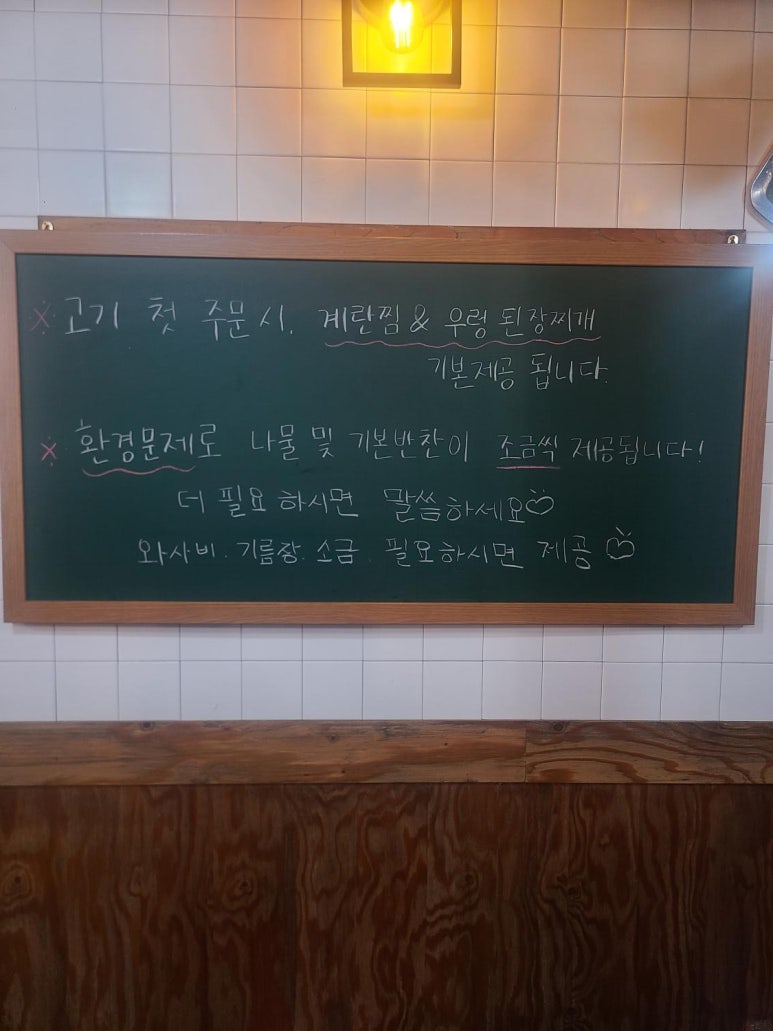 ※ 고기 첫 주문 시. 계란찜 & 우렁 된장찌개
기본제공 됩니다.
※ 환경문제로 나물 및 기본반찬이 조금씩 제공됩니다!
더 필요 하시면 말씀하세요
와사비. 기름장. 소금. 필요하시면 제공